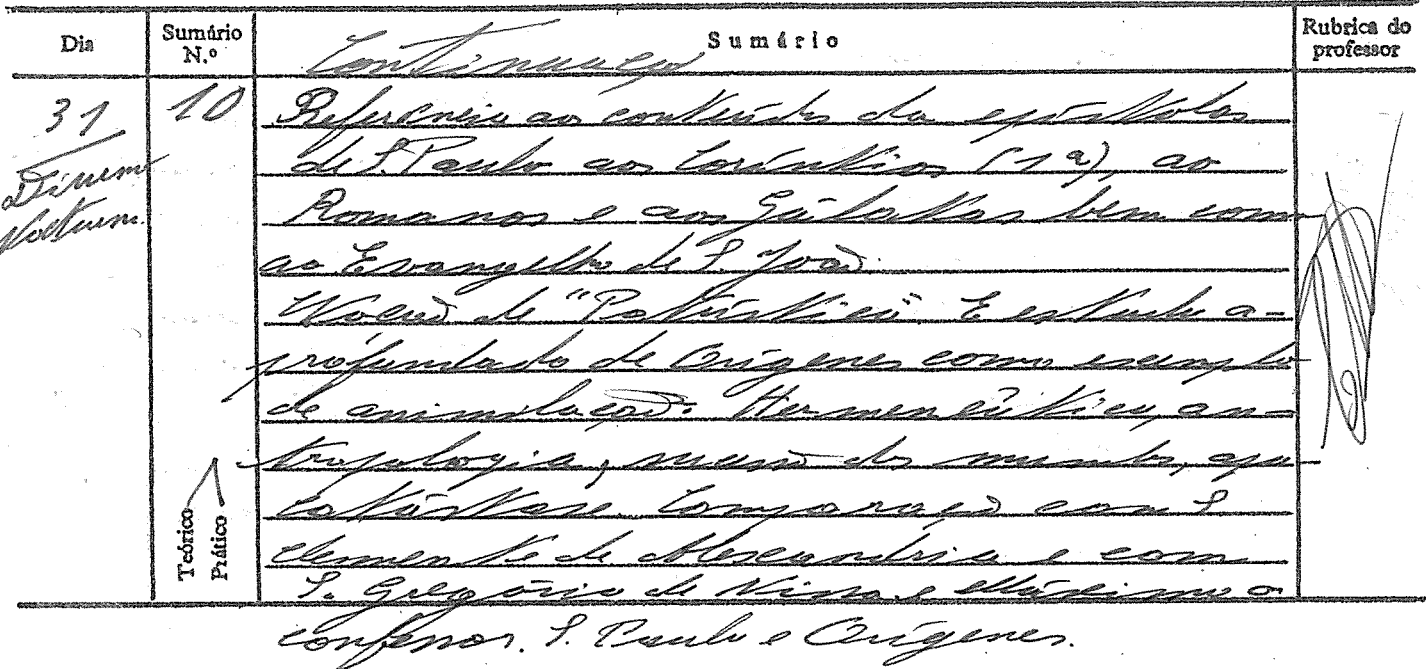 Dia Sumário N.º Sumário Rubrica do professor
Continuação
31 10 Referência ao conteúdo da epístolas
Diurno de S. Paulo aos Coríntios (1ª), ao
Nocturno. Romanos e aos Gálatas bem como
ao Evangelho de S. João.
Noção de "Patrística" E estudo a-
profundado de Orígenes como exemplo
de assimilação. Hermenêutica, an-
tropologia, visão do mundo, apo
catástase. Comparação com S.
Teórico Prático Clemente de Alexandria e com
S. Gregório de Nissa e Máximo o
confessor. S. Paulo e Orígenes.